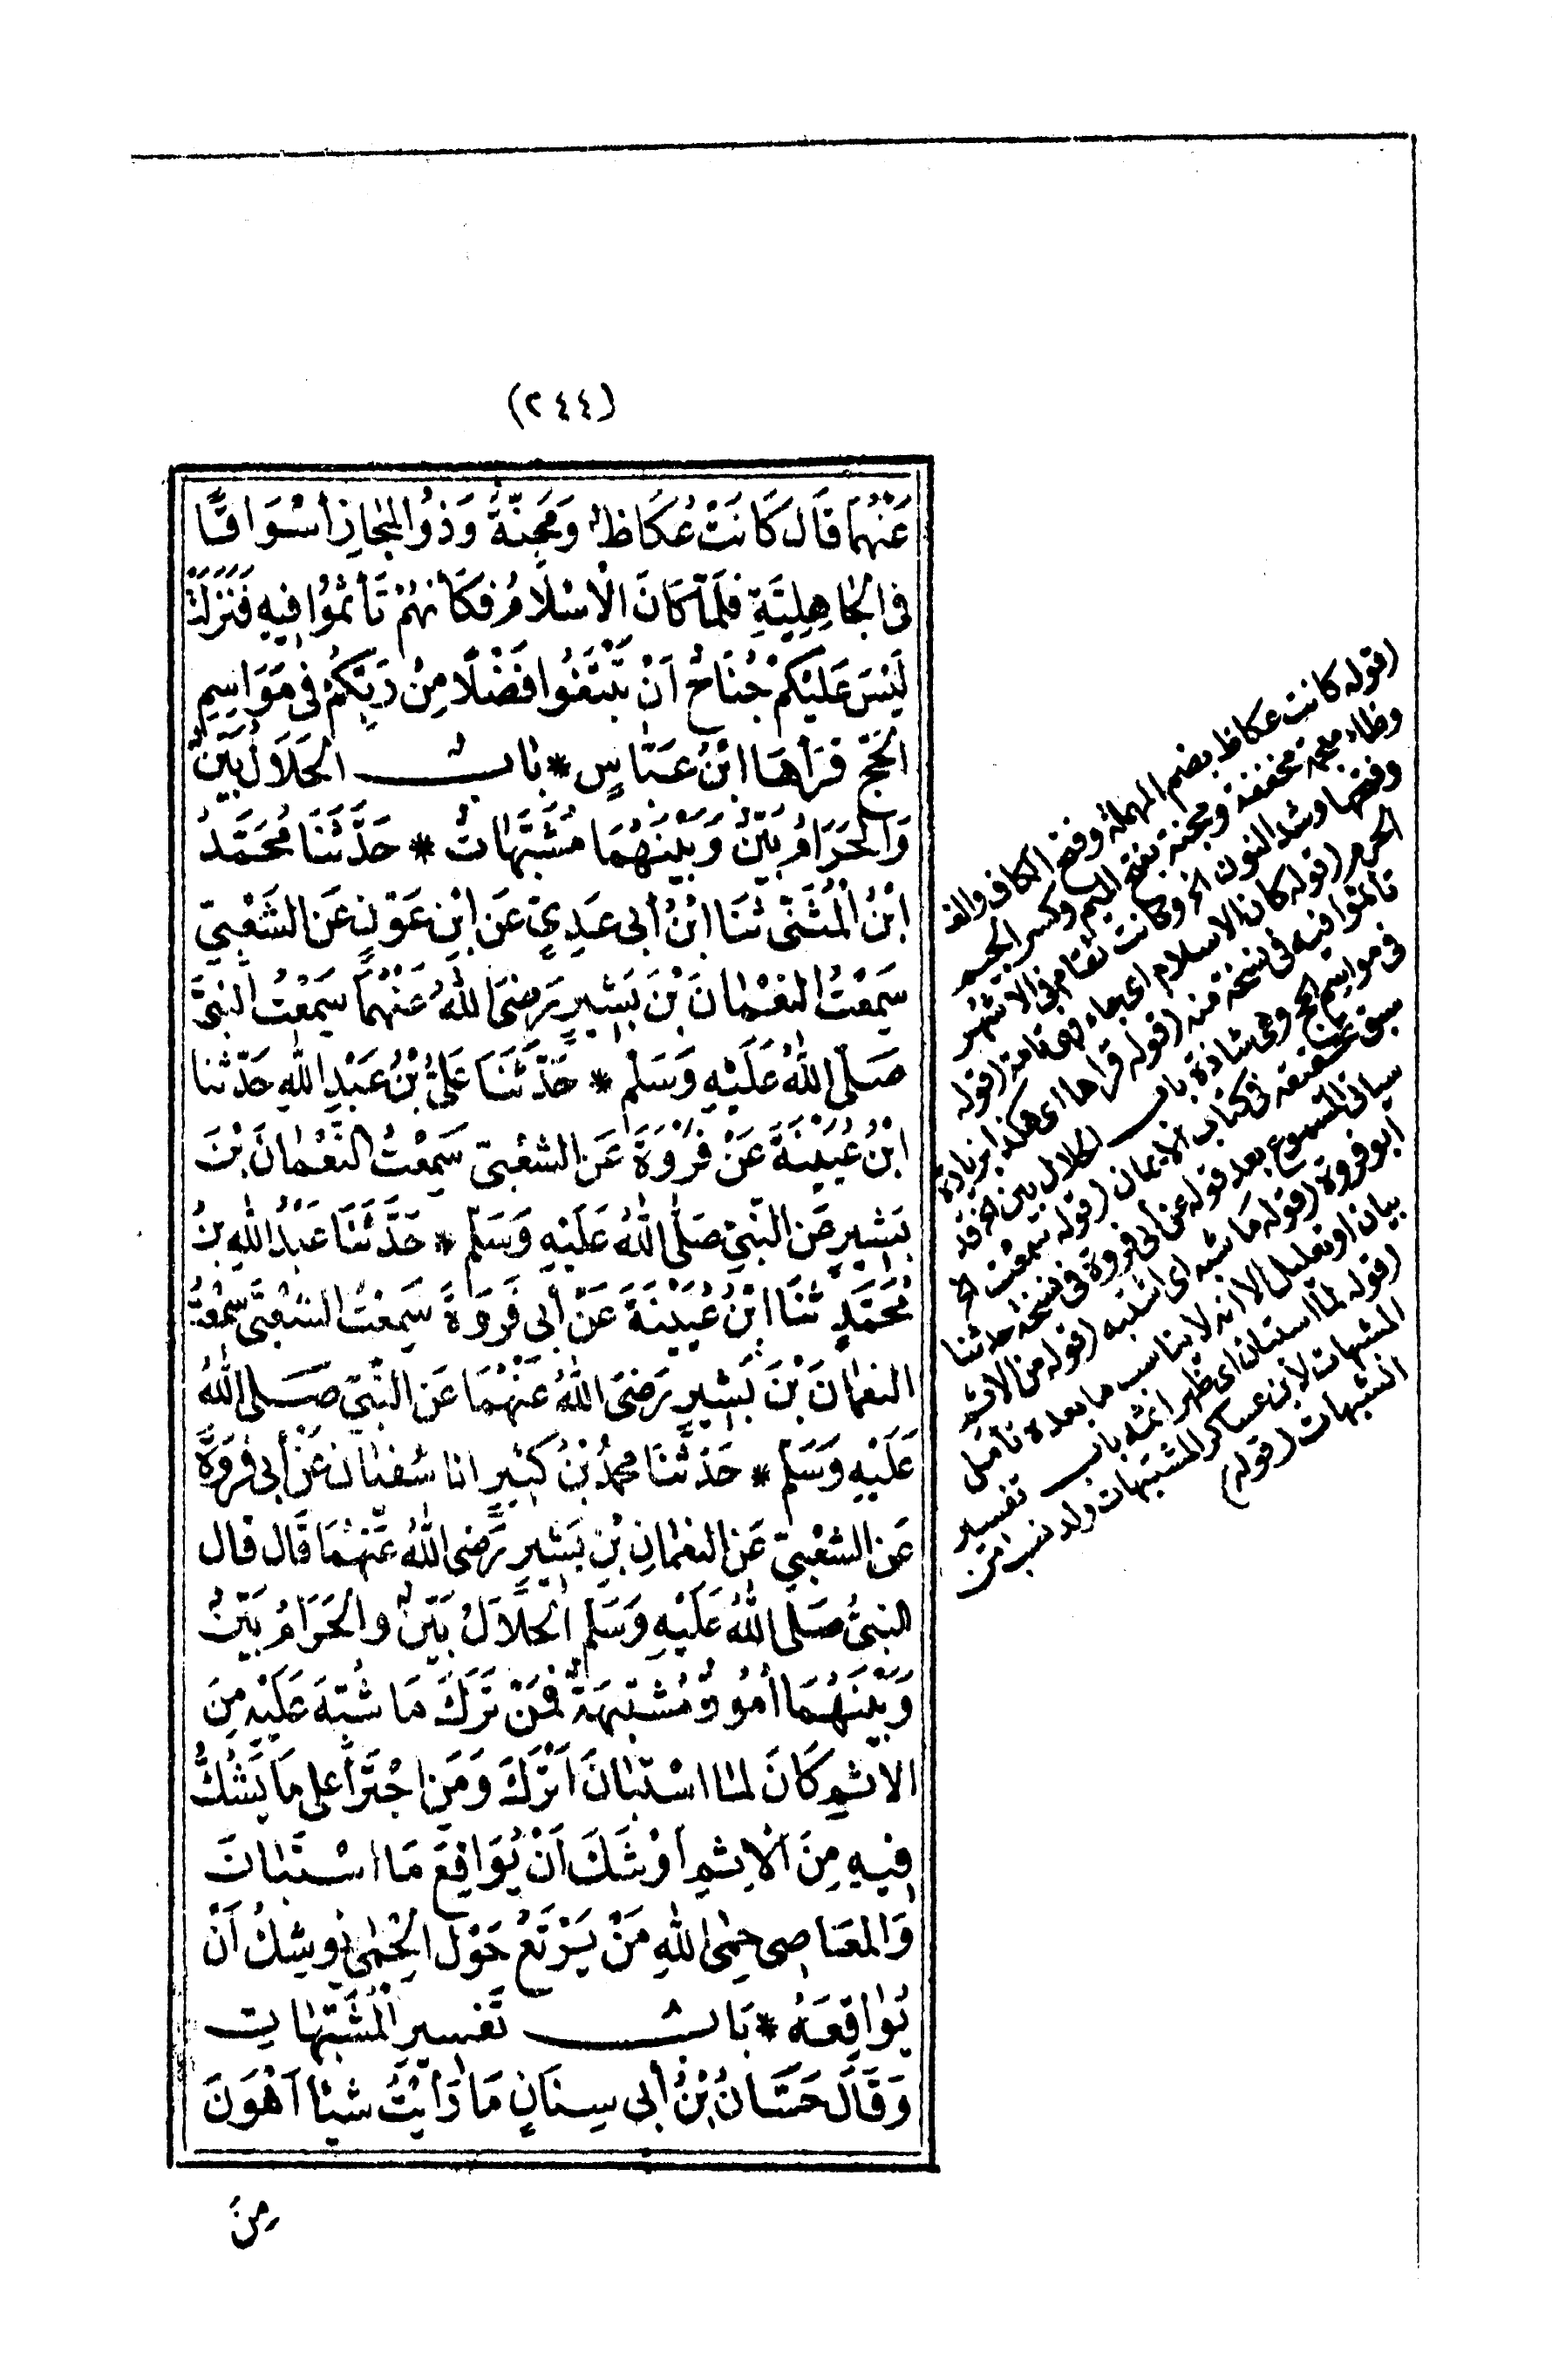 (٢٤٤)
عَنْهُمَا قَالَ كَانَتْ عُكَاظُ وَمَجَنَّةُ وَذُو الْمَجَازِ أَسْوَاقًا
فِى الْجَاهِلِيَّةِ فَلَمَّا كَانَ الْإِسْلَامُ فَكَأَنَّهُمْ تَأَثَّمُوا فِيهِ فَنَزَلَتْ
لَيْسَ عَلَيْكُمْ جُنَاحٌ أَنْ تَبْتَغُوا فَضْلًا مِنْ رَبِّكُمْ فِى مَوَاسِمِ
الْحَجِّ قَرَأَهَا ابْنُ عَبَّاسٍ * بَابٌ الْحَلَالُ بَيِّنٌ
وَالْحَرَامُ بَيِّنٌ وَبَيْنَهُمَا مُشَبَّهَاتٌ * حَدَّثَنَا مُحَمَّدُ
ابْنُ الْمُثَنَّى ثَنَا ابْنُ أَبِى عَدِيٍّ عَنِ ابْنِ عَوْنٍ عَنِ الشَّعْبِيِّ
سَمِعْتُ النُّعْمَانَ بْنَ بَشِيرٍ رَضِىَ اللهُ عَنْهُمَا سَمِعْتُ النَّبِىَّ
صَلَّى اللهُ عَلَيْهِ وَسَلَّمَ * حَدَّثَنَا عَلِىُّ بْنُ عَبْدِ اللهِ حَدَّثَنَا
ابْنُ عُيَيْنَةَ عَنْ فَرْوَةَ عَنِ الشَّعْبِىِّ سَمِعْتُ النُّعْمَانَ بْنَ
بَشِيرٍ عَنِ النَّبِىِّ صَلَّى اللهُ عَلَيْهِ وَسَلَّمَ * حَدَّثَنَا عَبْدُ اللهِ بْنُ
مُحَمَّدٍ ثَنَا ابْنُ عُيَيْنَةَ عَنْ أَبِى فَرْوَةَ سَمِعْتُ الشَّعْبِىَّ سَمِعْتُ
النُّعْمَانَ بْنَ بَشِيرٍ رَضِىَ اللهُ عَنْهُمَا عَنِ النَّبِىِّ صَلَّى اللهُ
عَلَيْهِ وَسَلَّمَ * حَدَّثَنَا مُحَمَّدُ بْنُ كَثِيرٍ انا سُفْيَانُ عَنْ أَبِى فَرْوَةَ
عَنِ الشَّعْبِىِّ عَنِ النُّعْمَانِ بْنِ بَشِيرٍ رَضِىَ اللهُ عَنْهُمَا قَالَ قَالَ
النَّبِىُّ صَلَّى اللهُ عَلَيْهِ وَسَلَّمَ الْحَلَالُ بَيِّنٌ وَالْحَرَامُ بَيِّنٌ
وَبَيْنَهُمَا أُمُورٌ مُشْتَبِهَةٌ فَمَنْ تَرَكَ مَا شُبِّهَ عَلَيْهِ مِنَ
الْإِثْمِ كَانَ لِمَا اسْتَبَانَ أَتْرَكَ وَمَنِ اجْتَرَأَ عَلَى مَا يَشُكُّ
فِيهِ مِنَ الْإِثْمِ أَوْشَكَ أَنْ يُوَاقِعَ مَا اسْتَبَانَ
وَالْمَعَاصِى حِمَى اللهِ مَنْ يَرْتَعْ حَوْلَ الْحِمَى يُوشِكُ أَنْ
يُوَاقِعَهُ * بَابُ تَفْسِيرِ الْمُشَبَّهَاتِ
وَقَالَ حَسَّانُ بْنُ أَبِى سِنَانٍ مَا رَأَيْتُ شَيْئًا أَهْوَنَ
مِنَ
(قوله كانت عكاظ بضم المهملة وفتح الكاف والف
وظاء معجمة مخففة ومجنة بفتح الميم وكسر الجيم
وفتحها وشد النون الخ وكانت تقام فى الاشهر
الحرم (قوله كان الاسلام اى جاء وهى تامة (قوله
تأثموا فيه فى نسخة منه (قوله قرأها اى هكذا بزيادة
فى مواسم الحج وهى شاذة باب الحلال بين الخ قد
سبق تحقيقه فى كتاب الايمان (قوله سمعت الخ
سيأتى المسموع بعد قوله عن ابى فروة فى نسخة حدثنا
ابو فروة (قوله ما شبه اى اشتبه (قوله من الاثم
بيان او تعليل الا انه لا يناسب ما بعده تأمل
(قوله لما استبان اى ظهر اثمه باب تفسير
المشبهات لابن عساكر المشتبهات
الشبهات (قوله)